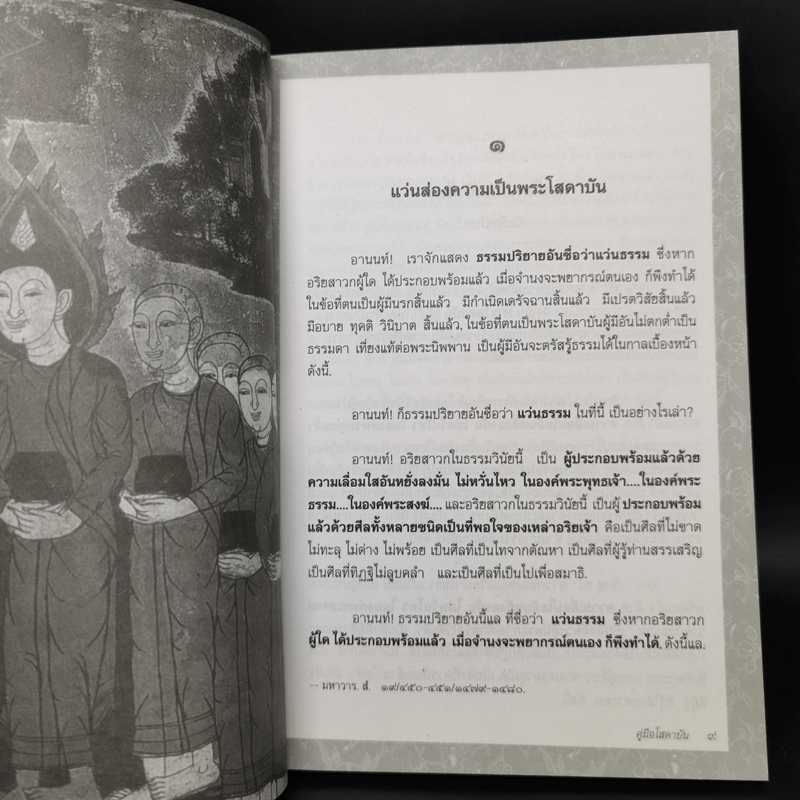 ๑
แว่นส่องความเป็นพระโสดาบัน
อานนท์! เราจักแสดง ธรรมปริยายอันชื่อว่าแว่นธรรม ซึ่งหาก
อริยสาวกผู้ใด ได้ประกอบพร้อมแล้ว เมื่อจำนงจะพยากรณ์ตนเอง ก็พึงทำได้
ในข้อที่ตนเป็นผู้มีนรกสิ้นแล้ว มีกำเนิดเดรัจฉานสิ้นแล้ว มีเปรตวิสัยสิ้นแล้ว
มีอบาย ทุคติ วินิบาต สิ้นแล้ว, ในข้อที่ตนเป็นพระโสดาบันผู้มีอันไม่ตกต่ำเป็น
ธรรมดา เที่ยงแท้ต่อพระนิพพาน เป็นผู้มีอันจะตรัสรู้ธรรมได้ในกาลเบื้องหน้า
ดังนี้.
อานนท์! ก็ธรรมปริยายอันชื่อว่า แว่นธรรม ในที่นี้ เป็นอย่างไรเล่า?
อานนท์! อริยสาวกในธรรมวินัยนี้ เป็น ผู้ประกอบพร้อมแล้วด้วย
ความเลื่อมใสอันหยั่งลงมั่น ไม่หวั่นไหว ในองค์พระพุทธเจ้า....ในองค์พระ
ธรรม....ในองค์พระสงฆ์.... และอริยสาวกในธรรมวินัยนี้ เป็นผู้ ประกอบพร้อม
แล้วด้วยศีลทั้งหลายชนิดเป็นที่พอใจของเหล่าอริยเจ้า คือเป็นศีลที่ไม่ขาด
ไม่ทะลุ ไม่ด่าง ไม่พร้อย เป็นศีลที่เป็นไทจากตัณหา เป็นศีลที่ผู้รู้ท่านสรรเสริญ
เป็นศีลที่ทิฏฐิไม่ลูบคลำ และเป็นศีลที่เป็นไปเพื่อสมาธิ.
อานนท์! ธรรมปริยายอันนี้แล ที่ชื่อว่า แว่นธรรม ซึ่งหากอริยสาวก
ผู้ใด ได้ประกอบพร้อมแล้ว เมื่อจำนงจะพยากรณ์ตนเอง ก็พึงทำได้, ดังนี้แล.
-- มหาวาร. สํ. ๑๙/๔๕๐-๔๕๑/๑๔๗๙-๑๔๘๐.
คู่มือโสดาบัน ๙